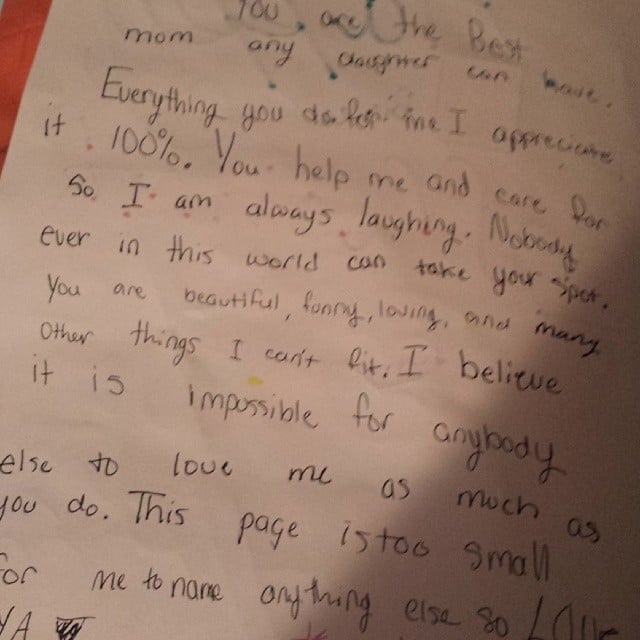 You are the Best
mom any daughter can have.
Everything you do for me I appreciate
it 100%. You help me and care for
So I am always laughing. Nobody
ever in this world can take your spot.
You are beautiful, funny, loving, and many
other things I can't fit. I believe
it is impossible for anybody
else to love me as much as
you do. This page is too small
for me to name anything else so LOVE
YA